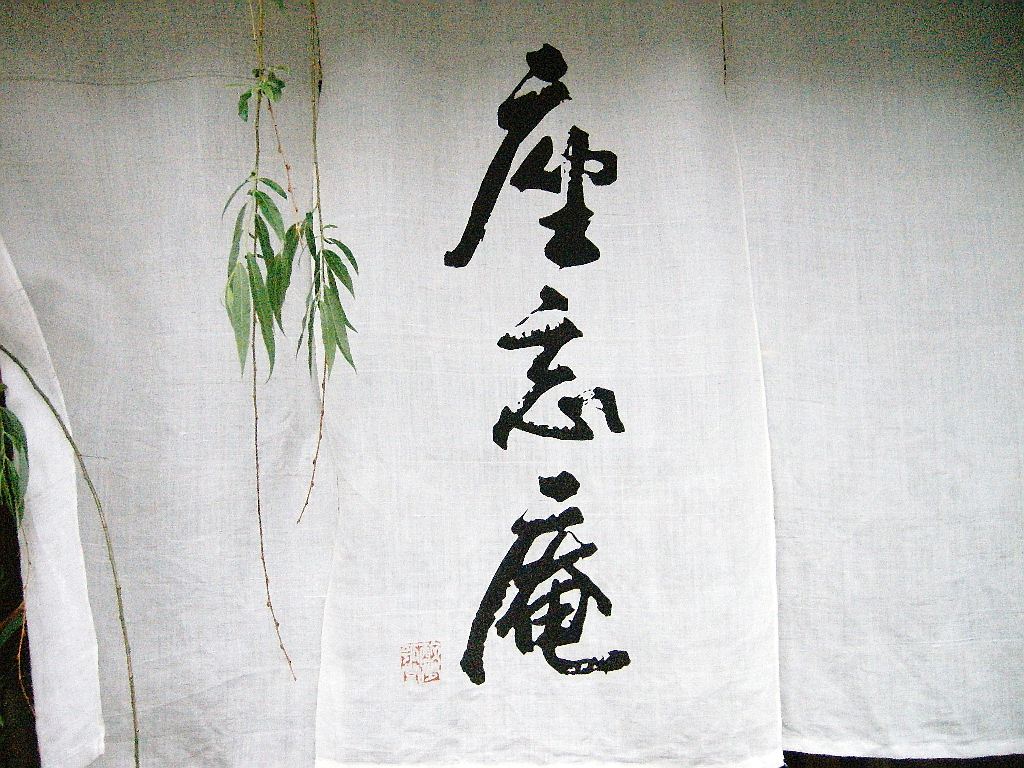 座忘庵